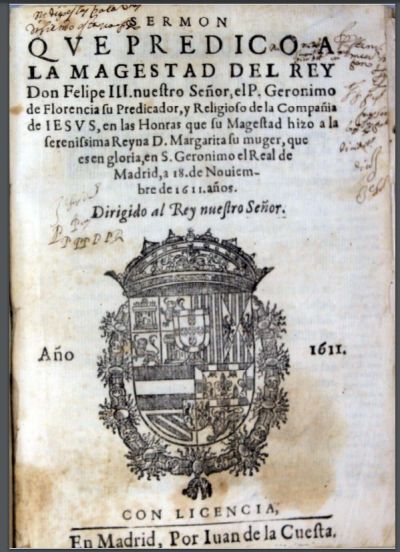 SERMON
QVE PREDICO A
LA MAGESTAD DEL REY
Don Felipe III. nuestro Señor, el P. Geronimo
de Florencia su Predicador, y Religioso de la Compañia
de IESVS, en las Honras que su Magestad hizo a la
serenissima Reyna D. Margarita su muger, que
es en gloria, en S. Geronimo el Real de
Madrid, a 18. de Nouiem-
bre de 1611. años.
Dirigido al Rey nuestro Señor.
Año 1611.
CON LICENCIA,
En Madrid, Por Iuan de la Cuesta.